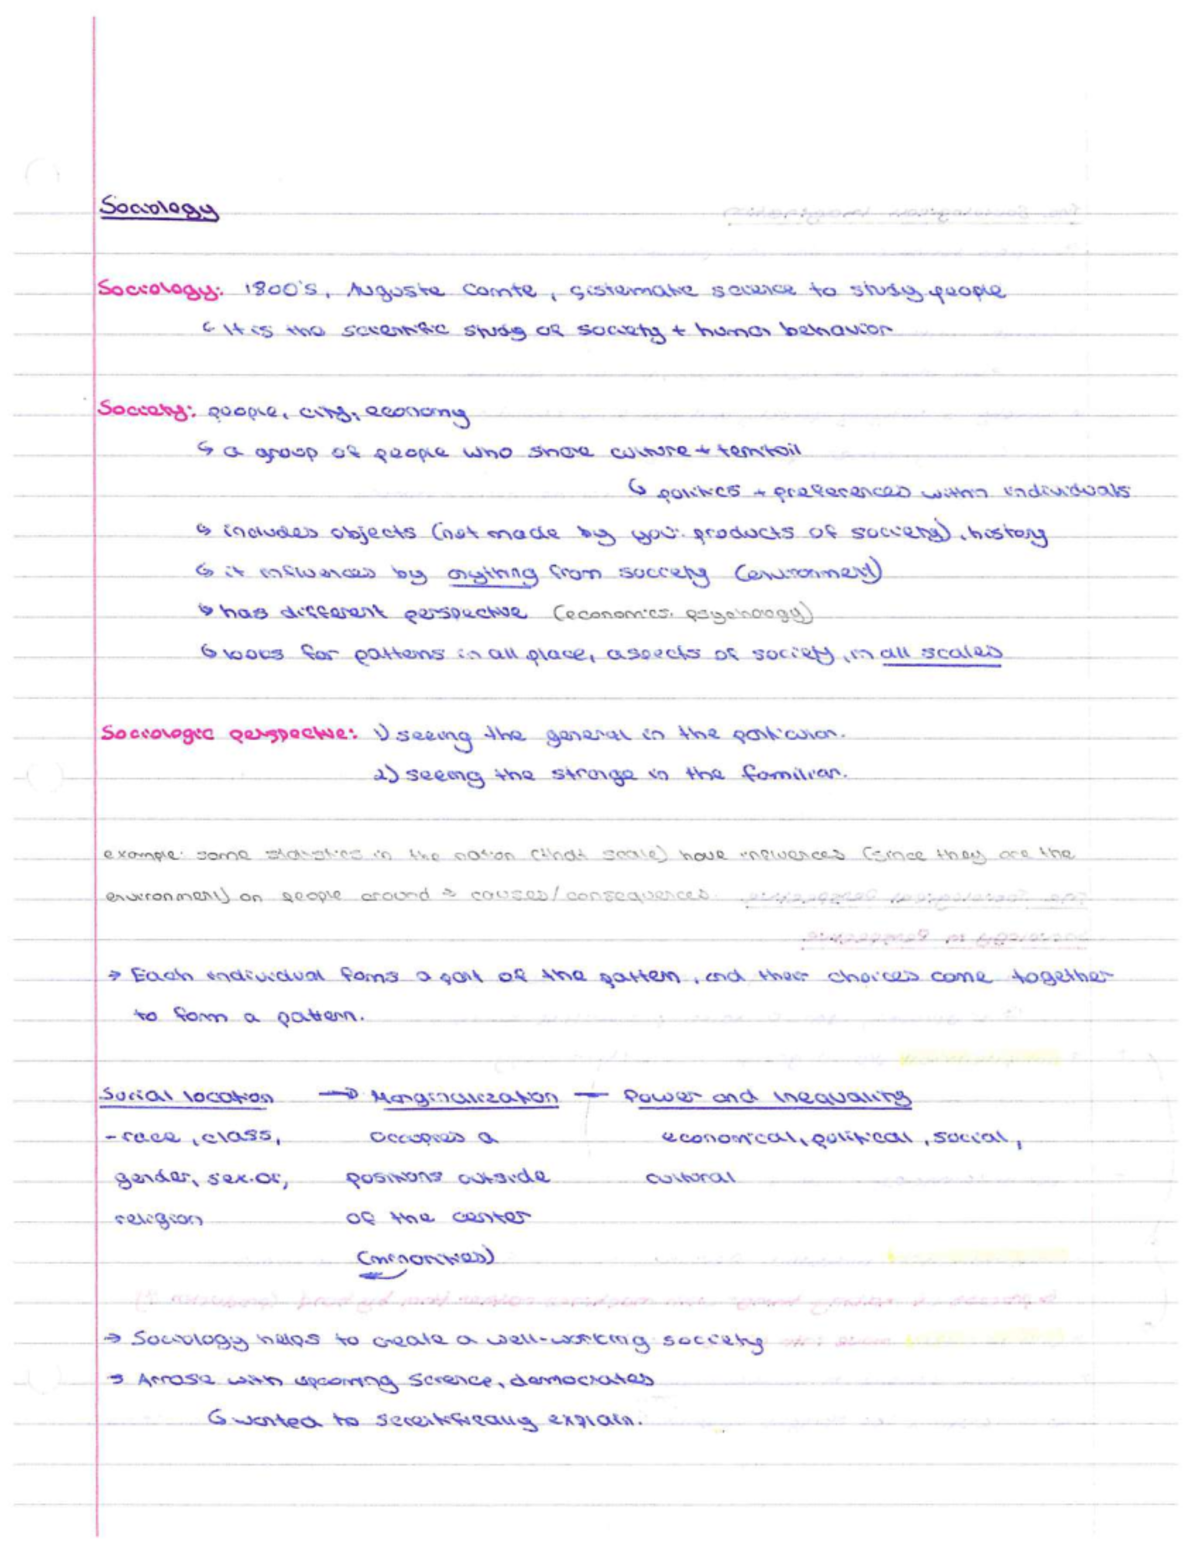 Sociology
Sociology: 1800's, Auguste Comte, sistematic science to study people
↳ It is the scientific study of society + human behavior
Society: people, city, economy
↳ a group of people who share culture + territoil
↳ politics + preferences within individuals
↳ includes objects (not made by you: products of society), history
↳ it influences by anything from society (environment)
↳ has different perspective (economics, psychology)
↳ looks for patterns in all place, aspects of society, in all scales
Sociologic perspective: 1) seeing the general in the particular.
2) seeing the strange in the familiar.
example: some statistics in the nation (that scale) have influences (since they are the
environment) on people around → causes/consequences.
→ Each individual forms a part of the pattern, and their choices come together
to form a pattern.
Social location → Marginalization — Power and Inequality
- race, class, occupies a economical, political, social,
gender, sex.or, positions outside cultural
religion of the center
(minorities)
→ Sociology helps to create a well-working society
→ Arrose with upcoming science, democrates
↳ wanted to explain.